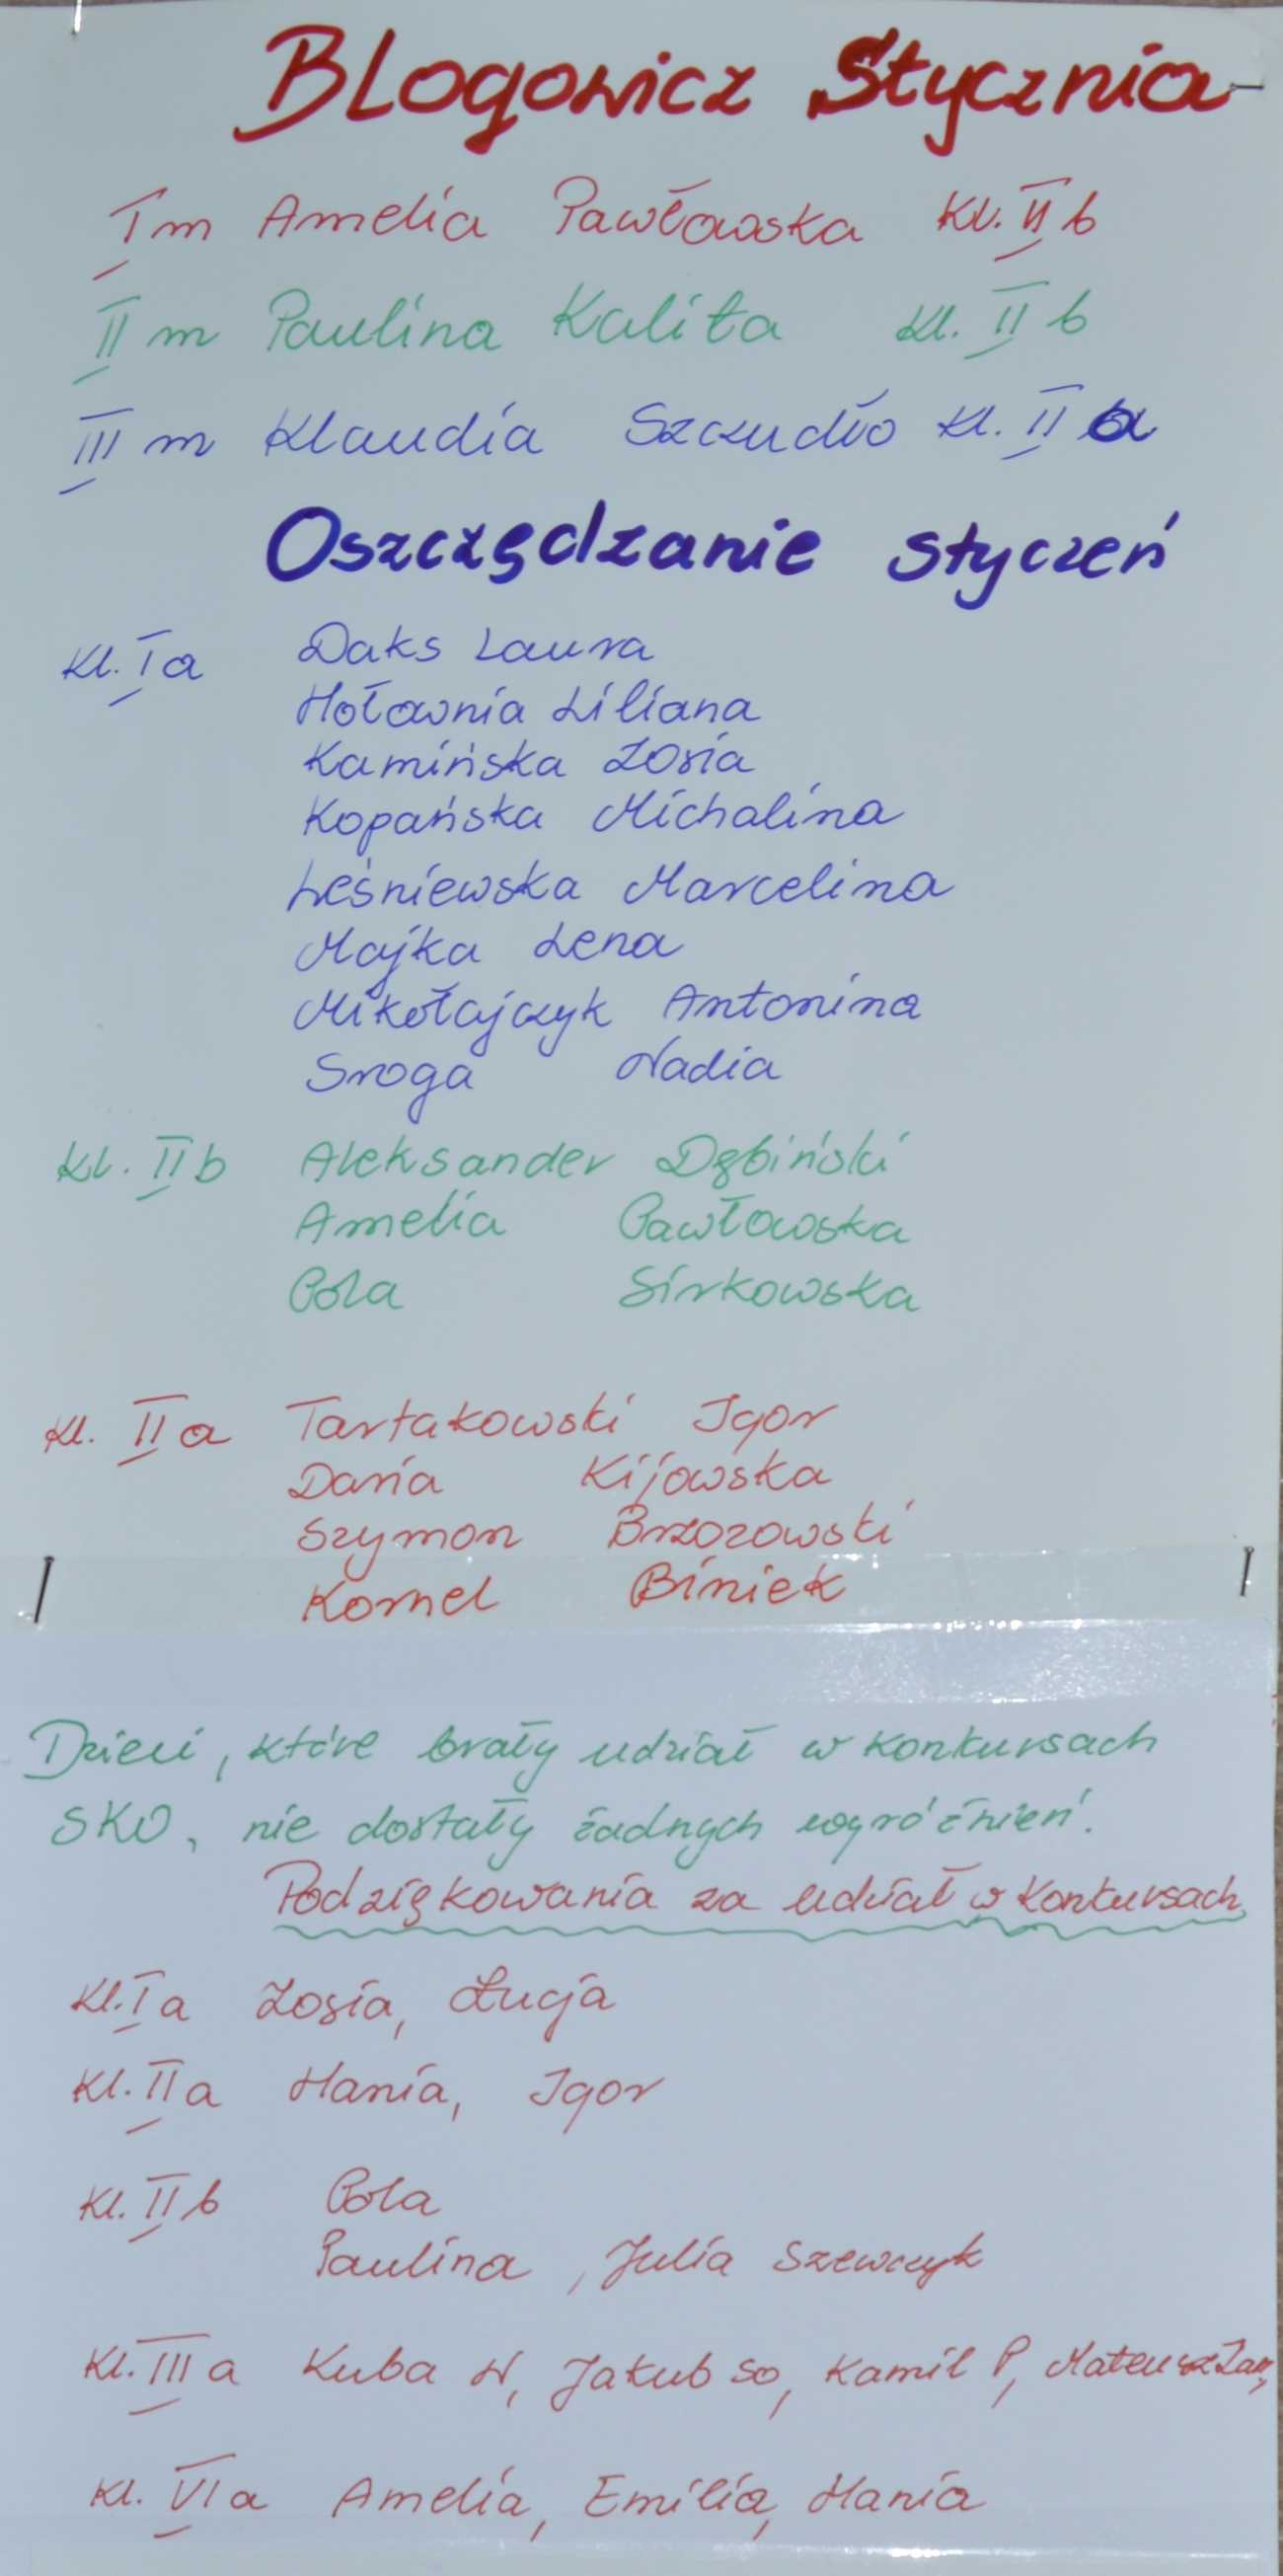 Blogowicz Stycznia
I m Amelia Pawłowska Kl. II b
II m Paulina Kalita Kl. II b
III m Klaudia Szczudło Kl. II a
Oszczędzanie styczeń
Kl. I a Daks Laura
Hołownia Liliana
Kamińska Zosia
Kopańska Michalina
Leśniewska Marcelina
Majka Lena
Mikołajczyk Antonina
Sroga Nadia
Kl. II b Aleksander Dębiński
Amelia Pawłowska
Pola Sirkowska
Kl. II a Tartakowski Igor
Daria Kijowska
Szymon Brzozowski
Kornel Biniek
Dzieci, które brały udział w konkursach
SKO, nie dostały żadnych wyróżnień.
Podziękowania za udział w Konkursach
Kl. I a Zosia, Łucja
Kl. II a Hania, Igor
Kl. II b Pola
Paulina, Julia Szewczyk
Kl. III a Kuba N, Jakub So, Kamil P, Mateusz
Kl. VI a Amelia, Emilia, Hania